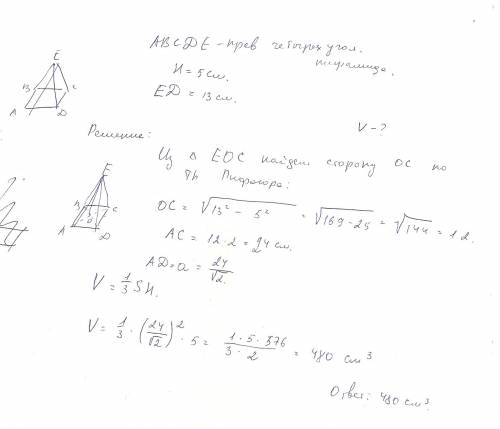 ABCDE - прав четырех угол.
пирамида.
H = 5 см.
ED = 13 см.
V - ?
E
B
C
A
D
Решение:
Из △ EOC найдем сторону OC по
тh Пифагора:
E
B
C
O
A
D
OC = √13² - 5² = √169 - 25 = √144 = 12.
AC = 12 · 2 = 24 см.
AD = a = 24/√2.
V = 1/3 SH.
V = 1/3 · (24/√2)² · 5 = 1·5·576/3·2 = 480 см³
Ответ: 480 см³.